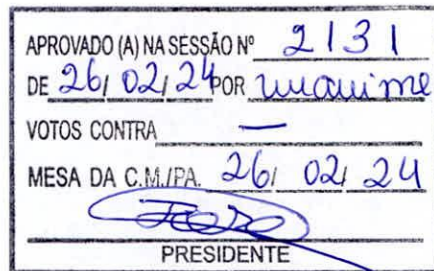 APROVADO (A) NA SESSÃO Nº 2131
DE 26/ 02/ 24 POR unanime
VOTOS CONTRA —
MESA DA C.M./PA. 26/ 02/ 24
PRESIDENTE